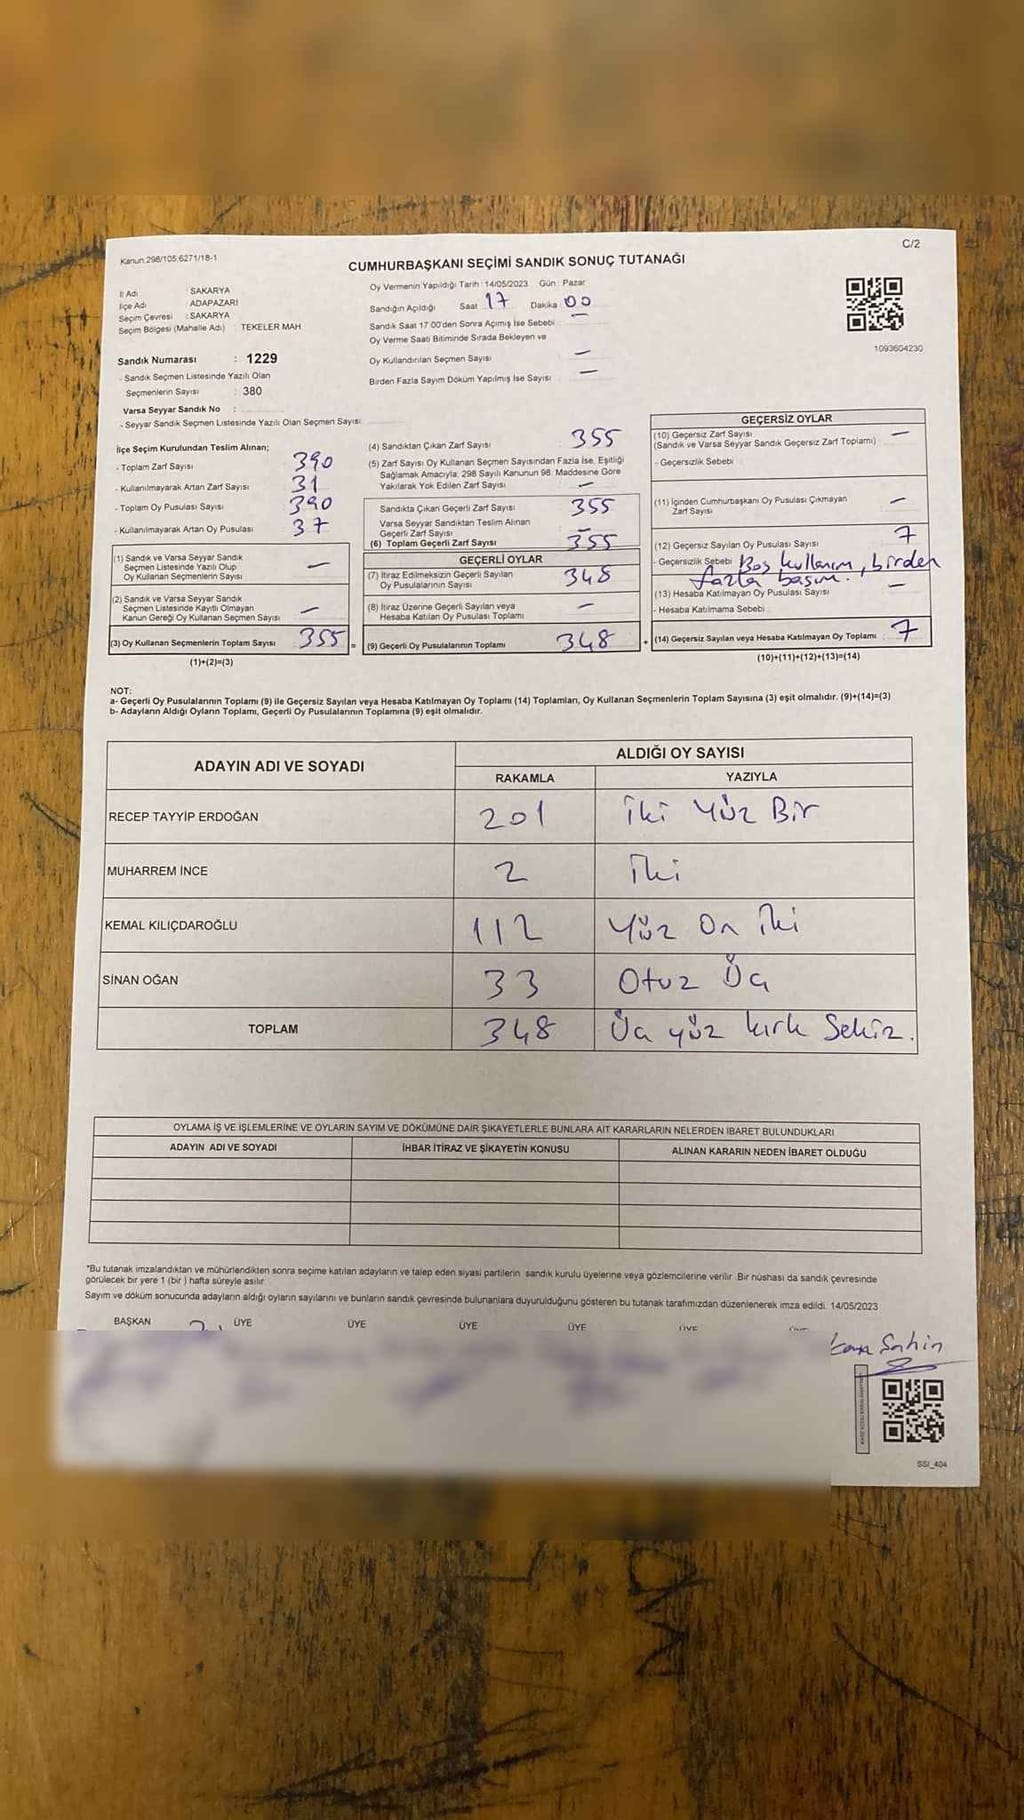 Kanun:298/105:6271/18-1
C/2
CUMHURBAŞKANI SEÇİMİ SANDIK SONUÇ TUTANAĞI
İl Adı : SAKARYA
İlçe Adı : ADAPAZARI
Seçim Çevresi : SAKARYA
Seçim Bölgesi (Mahalle Adı) TEKELER MAH
Oy Vermenin Yapıldığı Tarih 14/05/2023 Gün Pazar
Sandığın Açıldığı Saat 17 Dakika 00
Sandık Saat 17:00'den Sonra Açımış İse Sebebi —
Oy Verme Saati Bitiminde Sırada Bekleyen ve
Oy Kullandırılan Seçmen Sayısı —
Birden Fazla Sayım Döküm Yapılmış İse Sayısı —
1093604230
Sandık Numarası : 1229
- Sandık Seçmen Listesinde Yazılı Olan
Seçmenlerin Sayısı : 380
Varsa Seyyar Sandık No :
- Seyyar Sandık Seçmen Listesinde Yazılı Olan Seçmen Sayısı
İlçe Seçim Kurulundan Teslim Alınan;
- Toplam Zarf Sayısı 390
- Kullanılmayarak Artan Zarf Sayısı 31
- Toplam Oy Pusulası Sayısı 390
- Kullanılmayarak Artan Oy Pusulası 37
(1) Sandık ve Varsa Seyyar Sandık
Seçmen Listesinde Yazılı Olup
Oy Kullanan Seçmenlerin Sayısı —
(2) Sandık ve Varsa Seyyar Sandık
Seçmen Listesinde Kayıtlı Olmayan
Kanun Gereği Oy Kullanan Seçmen Sayısı —
(3) Oy Kullanan Seçmenlerin Toplam Sayısı 355 =
(1)+(2)=(3)
(4) Sandıktan Çıkan Zarf Sayısı 355
(5) Zarf Sayısı Oy Kullanan Seçmen Sayısından Fazla İse, Eşitliği
Sağlamak Amacıyla; 298 Sayılı Kanunun 98. Maddesine Göre
Yakılarak Yok Edilen Zarf Sayısı —
Sandıkta Çıkan Geçerli Zarf Sayısı 355
Varsa Seyyar Sandıktan Teslim Alınan
Geçerli Zarf Sayısı —
(6) Toplam Geçerli Zarf Sayısı 355
GEÇERLİ OYLAR
(7) İtiraz Edilmeksizin Geçerli Sayılan
Oy Pusulalarının Sayısı 348
(8) İtiraz Üzerine Geçerli Sayılan veya
Hesaba Katılan Oy Pusulası Toplamı —
(9) Geçerli Oy Pusulalarının Toplamı 348 +
GEÇERSİZ OYLAR
(10) Geçersiz Zarf Sayısı —
(Sandık ve Varsa Seyyar Sandık Geçersiz Zarf Toplamı)
- Geçersizlik Sebebi
(11) İçinden Cumhurbaşkanı Oy Pusulası Çıkmayan
Zarf Sayısı —
(12) Geçersiz Sayılan Oy Pusulası Sayısı 7
- Geçersizlik Sebebi Boş kullanım, birden
fazla basım.
(13) Hesaba Katılmayan Oy Pusulası Sayısı —
- Hesaba Katılmama Sebebi
(14) Geçersiz Sayılan veya Hesaba Katılmayan Oy Toplamı : 7
(10)+(11)+(12)+(13)=(14)
NOT:
a- Geçerli Oy Pusulalarının Toplamı (9) ile Geçersiz Sayılan veya Hesaba Katılmayan Oy Toplamı (14) Toplamları, Oy Kullanan Seçmenlerin Toplam Sayısına (3) eşit olmalıdır. (9)+(14)=(3)
b- Adayların Aldığı Oyların Toplamı, Geçerli Oy Pusulalarının Toplamına (9) eşit olmalıdır.
ADAYIN ADI VE SOYADI
ALDIĞI OY SAYISI
RAKAMLA YAZIYLA
RECEP TAYYİP ERDOĞAN 201 İki Yüz Bir
MUHARREM İNCE 2 İki
KEMAL KILIÇDAROĞLU 112 Yüz On İki
SİNAN OĞAN 33 Otuz Üç
TOPLAM 348 Üç yüz kırk Sekiz.
OYLAMA İŞ VE İŞLEMLERİNE VE OYLARIN SAYIM VE DÖKÜMÜNE DAİR ŞİKAYETLERLE BUNLARA AİT KARARLARIN NELERDEN İBARET BULUNDUKLARI
ADAYIN ADI VE SOYADI İHBAR İTİRAZ VE ŞİKAYETİN KONUSU ALINAN KARARIN NEDEN İBARET OLDUĞU
*Bu tutanak imzalandıktan ve mühürlendikten sonra seçime katılan adayların ve talep eden siyasi partilerin sandık kurulu üyelerine veya gözlemcilerine verilir. Bir nüshası da sandık çevresinde
görülecek bir yere 1 (bir) hafta süreyle asılır.
Sayım ve döküm sonucunda adayların aldığı oyların sayılarını ve bunların sandık çevresinde bulunanlara duyurulduğunu gösteren bu tutanak tarafımızdan düzenlenerek imza edildi. 14/05/2023
BAŞKAN ÜYE ÜYE ÜYE ÜYE ÜYE
Şahin
SSI_404